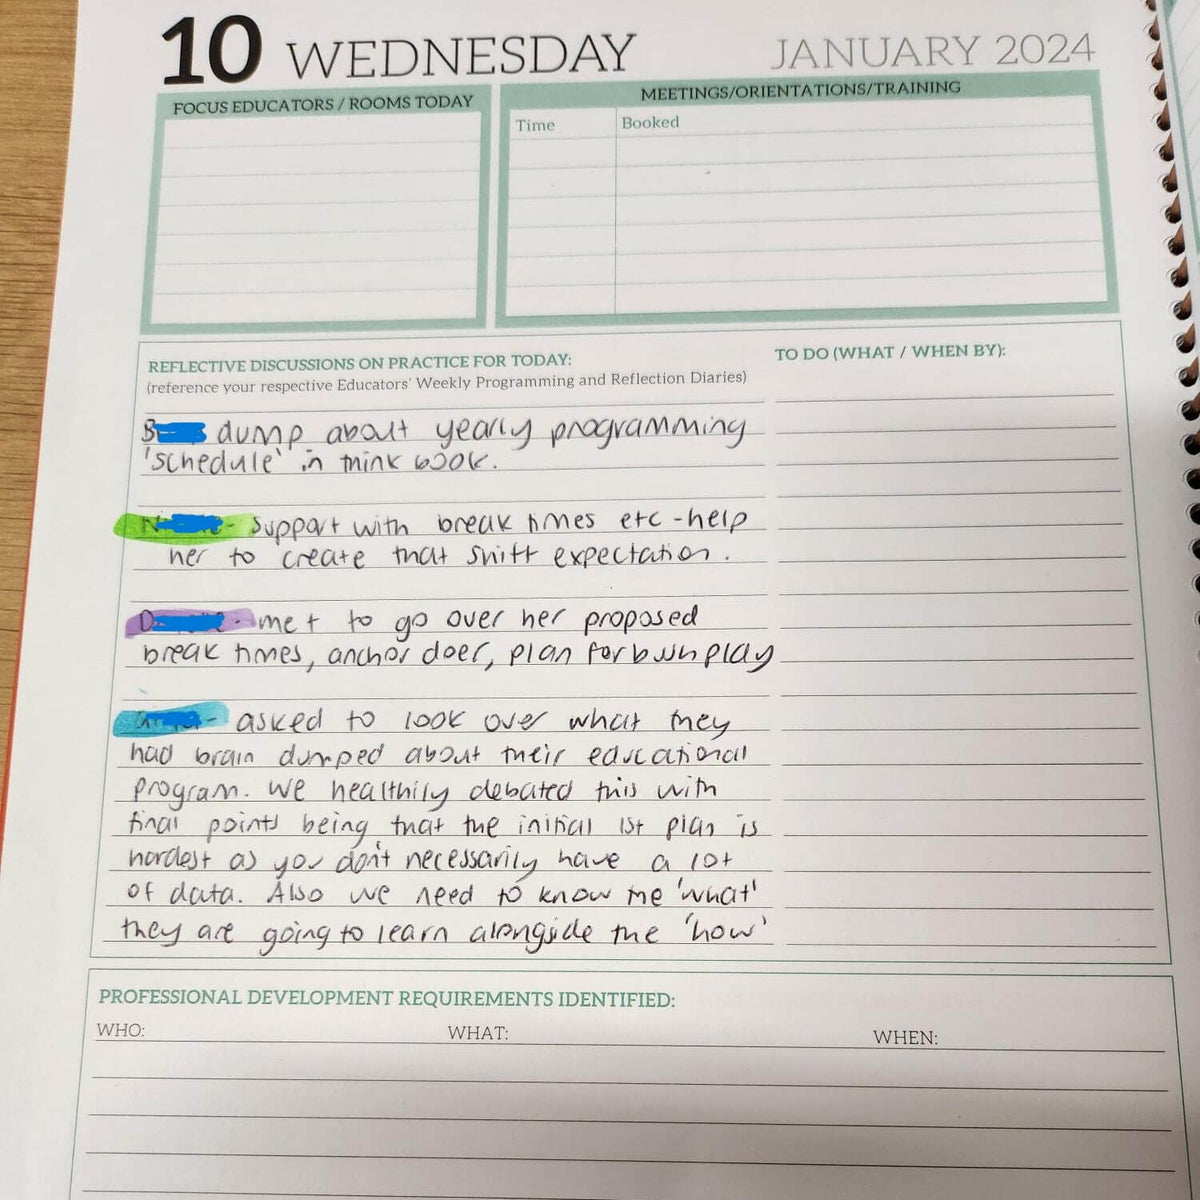 10 WEDNESDAY JANUARY 2024
FOCUS EDUCATORS / ROOMS TODAY
MEETINGS/ORIENTATIONS/TRAINING
Time Booked
REFLECTIVE DISCUSSIONS ON PRACTICE FOR TODAY:
(reference your respective Educators' Weekly Programming and Reflection Diaries)
TO DO (WHAT / WHEN BY):
dump about yearly programming
'schedule' in think book.
support with break times etc - help
her to create that shift expectation.
met to go over her proposed
break times, anchor doer, plan for bush play
asked to look over what they
had brain dumped about their educational
program. We healthily debated this with
final points being that the initial 1st plan is
hardest as you don't necessarily have a lot
of data. Also we need to know the 'what'
they are going to learn alongside the 'how'
PROFESSIONAL DEVELOPMENT REQUIREMENTS IDENTIFIED:
WHO: WHAT: WHEN: